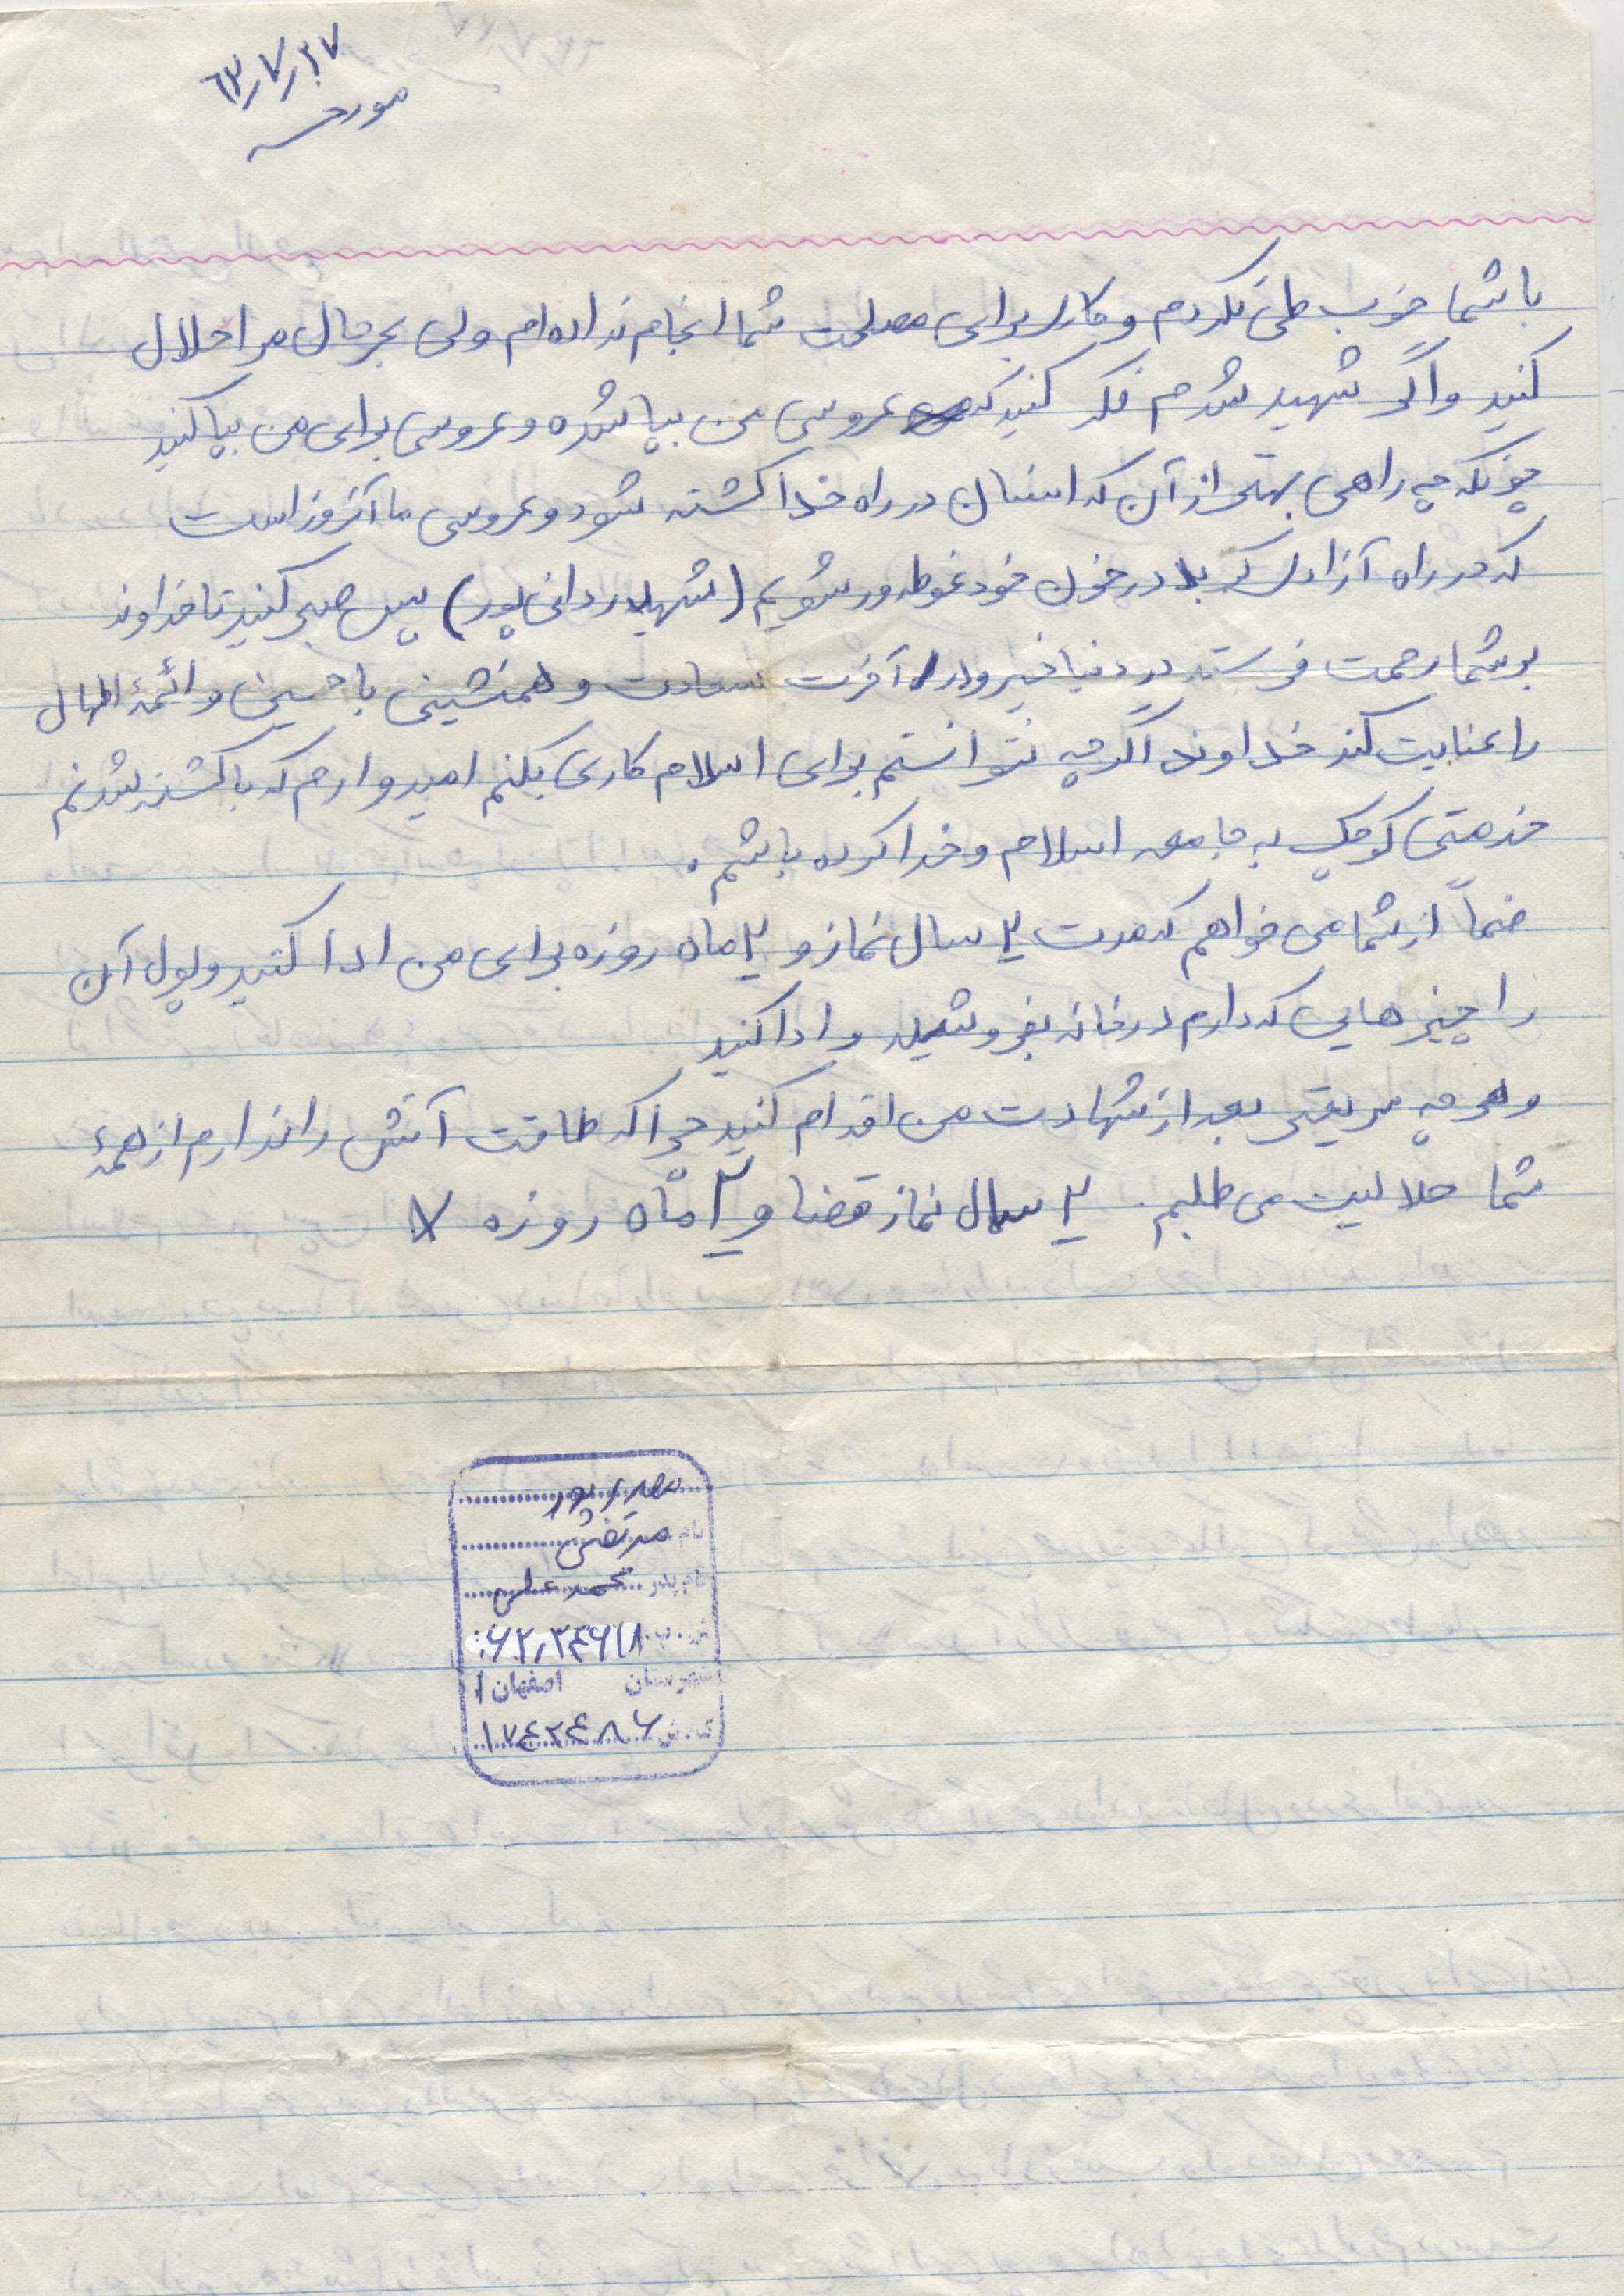 ۶۳٫۷٫۲۷
مورخــه
با شما خوب طی نکردم و کاری برای مصلحت شما انجام نداده‌ام ولی بهرحال مرا حلال
کنید و اگر شهید شدم فکر کنید که عروسی من بپا شده و عروسی برای من بپا کنید
چونکه چه راهی بهتر از آن که انسان در راه خدا کشته شود و عروسی ما آنروز است
که در راه آزادی کربلا در خون خود غوطه‌ور شویم (شهید ردانی پور) پس صبر کنید تا خداوند
بر شما رحمت فرستد در دنیا خیر و در آخرت سعادت و همنشینی با حسین و ائمهٔ اطهار
را عنایت کند خداوندا گرچه نتوانستم برای اسلام کاری بکنم امیدوارم که با کشته شدنم
خدمتی کوچک به جامعه اسلام و خدا کرده باشم .
ضمناً از شما می خواهم که مدت ۲ سال نماز و ۲ ماه روزه برای من ادا کنید و پول آن
را چیزهایی که دارم در خانه بفروشید و ادا کنید
و هرچه سریعتر بعد از شهادت من اقدام کنید چرا که طاقت آتش را ندارم از همهٔ
شما حلالیت می طلبم . ۲ سال نماز قضا و ۲ ماه روزه
مهدی پور
نام مرتضی
نام پدر محمد علی
ش.پ
شهرستان اصفهان
ک.ش ۱۷۴۲۴۸۶